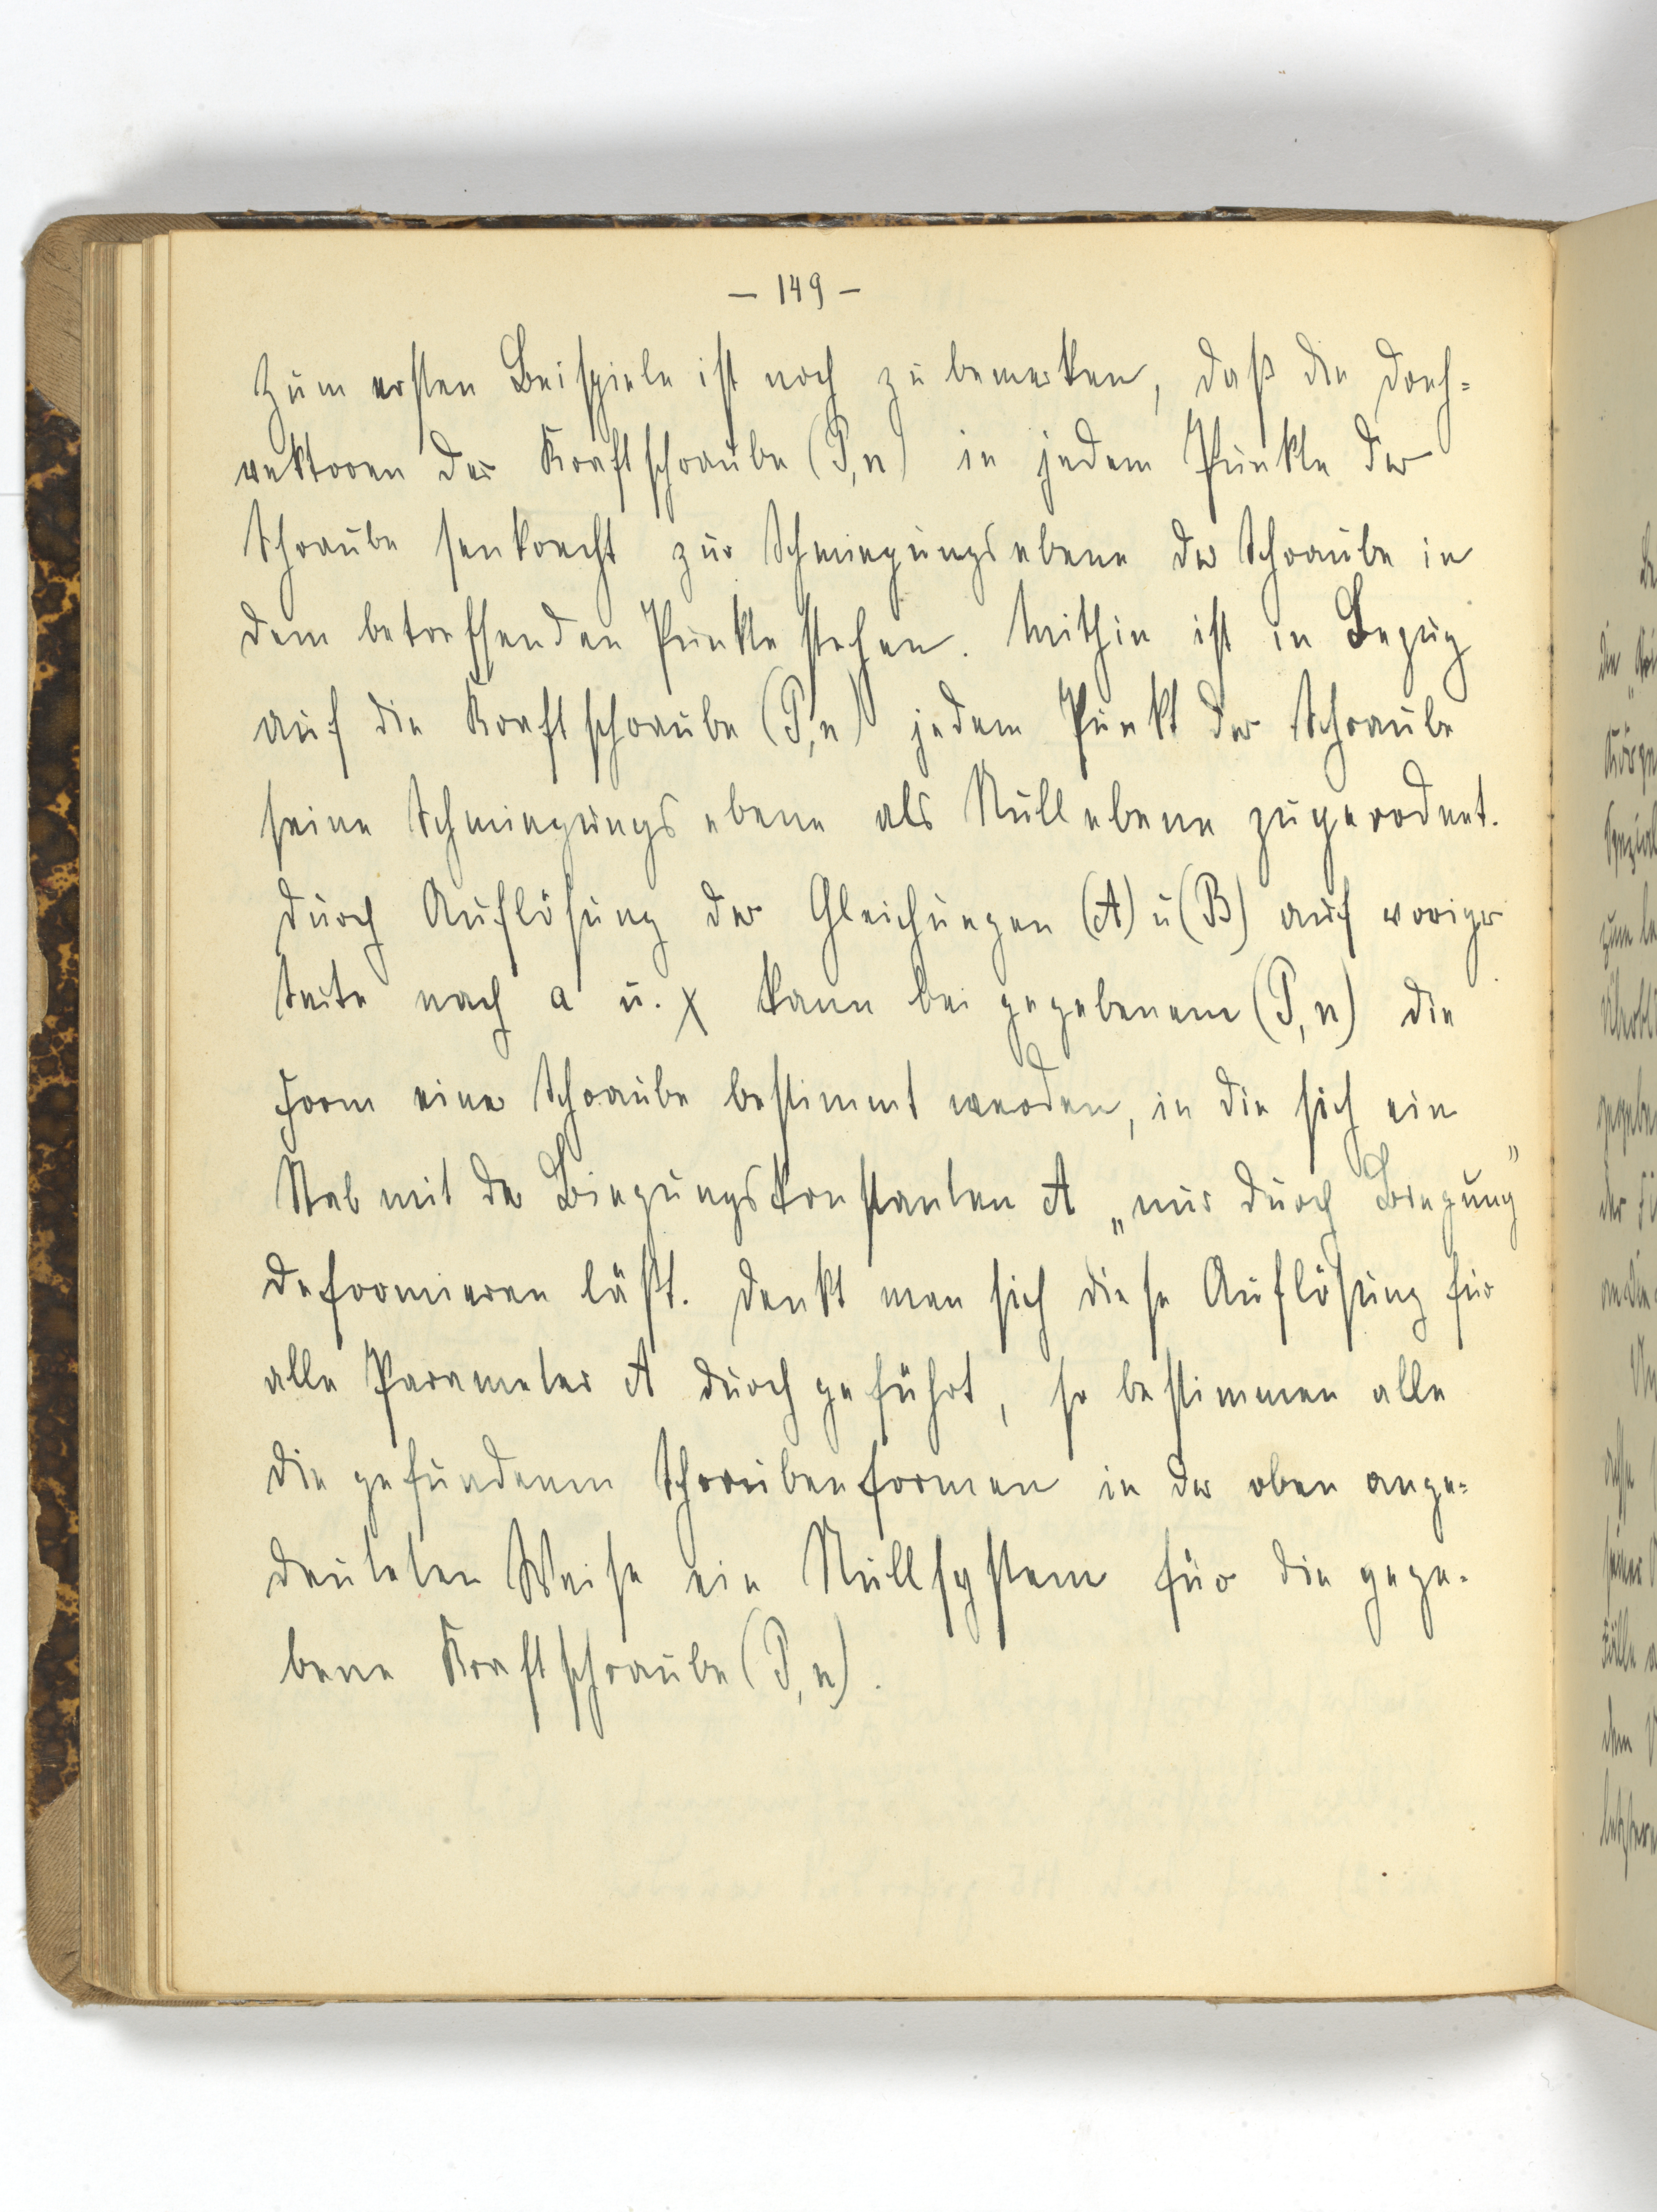 — 149 —
Zum ersten Beispiele ist noch zu bemerken, daß die Dreh=
vektoren der Kraftschraube (P, n) in jedem Punkte der
Schraube senkrecht zur Schmiegungsebene der Schraube in
dem betreffenden Punkte stehen. Mithin ist in Bezug
auf die Kraftschraube (P, n) jedem Punkt der Schraube
seine Schmiegungsebene als Nullebene zugeordnet.
Durch Auflösung der Gleichungen (A) u (B) auf voriger
Seite nach a u. χ kann bei gegebenem (P, n) die
Form einer Schraube bestimmt werden, in die sich ein
Stab mit der Biegungskonstanten A „nur durch Biegung"
deformieren läßt. Denkt man sich diese Auflösung für
alle Parameter A durchgeführt, so bestimmen alle
die gefundenen Schraubenformen in der oben ange=
deuteten Weise ein Nullsystem für die gege=
bene Kraftschraube (P, n).